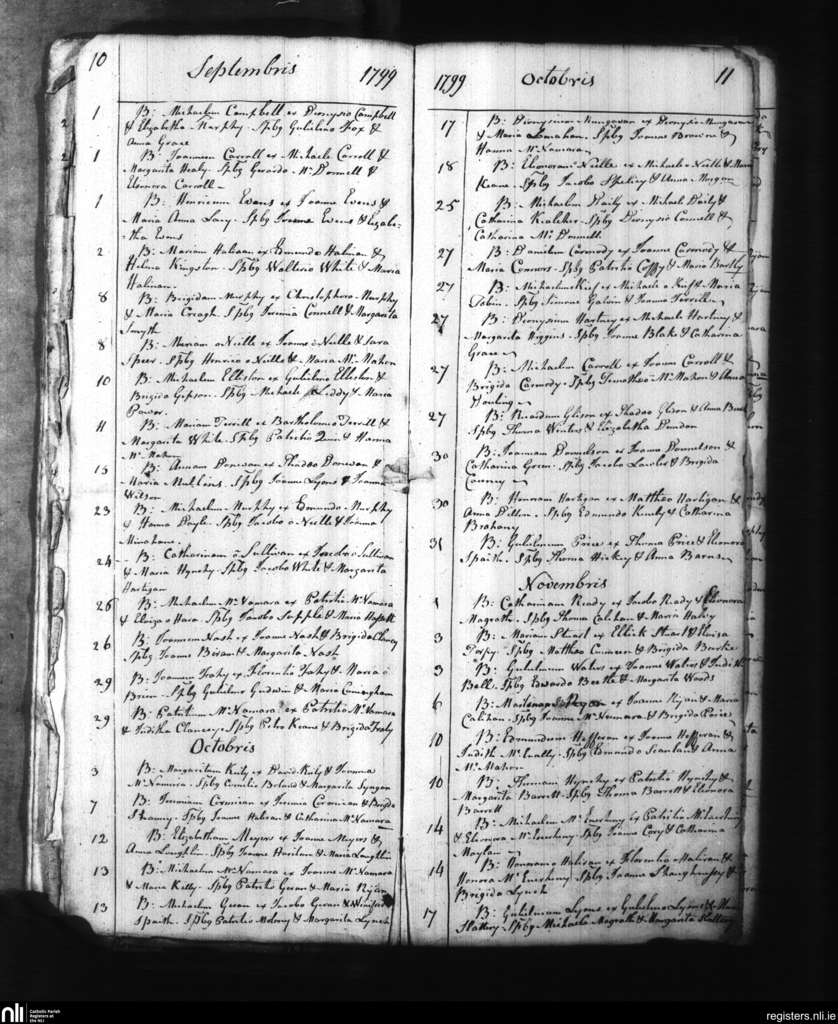 10 Septembris 1799
1 B: Michaelem Campbell ex Dionysio Campbell
& Elizabetha Murphy. Spbg Gulielmo Fox &
Anna Grace
1 B: Joannem Carroll ex Michaele Carroll &
Margarita Healy. Spbg Gerardo McDonnell &
Eleonora Carroll
1 B: Henricum Evans ex Joanne Evans &
Maria Anna Lacy. Spbg Joanne Evans & Elizabe-
tha Evans
2 B: Mariam Halinan ex Edmundo Halinan &
Helena Kingston. Spbg Waltero White & Maria
Halinan
8 B: Brigidam Murphy ex Christophoro Murphy
& Maria Creagh. Spbg Jeremia Connell & Margarita
Smyth
8 B: Mariam o Neille ex Joanne o Neille & Sara
Speer. Spbg Henrico o Neille & Maria McMahon
10 B: Michaelem Elleston ex Gulielmo Elleston &
Brigida Gipson. Spbg Michaele Leddy & Maria
Power
11 B: Mariam Terrill ex Bartholomeo Terrill &
Margarita White. Spbg Patritio Quin & Hanna
McMahon
15 B: Annam Donovan ex Thadeo Donovan &
Maria Mullins. Spbg Joanne Lyons & Joanna
Wilson
23 B: Michaelem Murphy ex Edmundo Murphy
& Hanna Doyle. Spbg Jacobo o Neille & Joanna
Minahane
24 B: Catharinam o Sullivan ex Jacobo o Sullivan
& Maria Hynchy. Spbg Jacobo White & Margarita
Hartigan
26 B: Michaelem McNamara ex Patritio McNamara
& Eliza o Hara. Spbg Jacobo Sopple & Maria
26 B: Joannem Nash ex Joanne Nash & Brigida Clancy
Spbg Joanne & Margarita Nash
29 B: Joannem Frahy ex Florentio Frahy & Maria o
Brien. Spbg Gulielmo Godwin & Maria Cuningham
29 B: Patritium McNamara ex Patritio McNamara
& Juditha Clancey. Spbg Petro Keane & Brigida Frahy
Octobris
3 B: Margaritam Kiely ex David Kiely & Joanna
McNamara. Spbg Cornelio Boland & Margarita
7 B: Jeremiam Cronican ex Jeremia Cronican & Brigida
Spbg Joanne Halinan & Catharina McNamara
12 B: Elizabetham Meyers ex Joanne Meyers &
Anna Laughlin. Spbg Joanne & Maria Laughlin
13 B: Michaelem McNamara ex Joanne McNamara
& Maria Kelly. Spbg Patritio Geran & Maria Ryan
13 B: Michaelem Geran ex Jacobo Geran & Winifrida
Spaith. Spbg Patritio Molony & Margarita Lynch
1799 Octobris 11
17 B: Dionysium Mungavan ex Dionysio Mungavan
& Maria Lenahan. Spbg Joanne Browne &
Hanna McNamara
18 B: Eleonoram Neille ex Michaele Neille & Maria
Keane. Spbg Jacobo & Anna Morgan
25 B: Michaelem Daily ex Michaele Daily &
Catharina Kealeher. Spbg Dionysio Connell &
Catharina McDonnell
27 B: Danielem Carmody ex Joanne Carmody &
Maria Connors. Spbg Patritio Coffy & Maria Bartly
27 B: Michaelem Kief ex Michaele o Kief & Maria
Tobin. Spbg Simone Galvin & Joanna
27 B: Dionysium Hartney ex Michaele Hartney &
Margarita Higgins. Spbg Joanne Blake & Catharina
Grace
27 B: Michaelem Carroll ex Joanne Carroll &
Brigida Carmody. Spbg Timotheo McMahon & Anna
Howling
27 B: Ricardum Glison ex Thadeo Glison & Anna
Spbg Thoma Winters & Elizabetha Dondon
30 B: Joannam Donnelson ex Joanne Donnelson &
Catharina Green. Spbg Jacobo Lawler & Brigida
Conney
30 B: Honoram Hartigan ex Mattheo Hartigan &
Anna Dillon. Spbg Edmundo Kiely & Catharina
Brahany
31 B: Gulielmum Price ex Thoma Price & Eleonora
Spaith. Spbg Thoma Hickey & Anna Barns
Novembris
1 B: Catharinam Ready ex Jacobo Ready & Eleonora
Magrath. Spbg Thoma Calihan & Maria Haley
3 B: Mariam Stuart ex Ellick Stuart & Eloisa
Torpy. Spbg Mattheo Cuneen & Brigida Burke
3 B: Gulielmum Waters ex Joanne Waters & Judith
Ball. Spbg Edwardo Beetle & Margarita Woods
6 B: Ryan ex Joanne Ryan & Maria
Calihan. Spbg Joanne McNamara & Brigida Price
10 B: Edmundum Heffernan ex Joanne Heffernan &
Judith McAnally. Spbg Edmundo Scanlan & Anna
McMahon
10 B: Thomam Hynchy ex Patritio Hynchy &
Margarita Barrett. Spbg Thoma Barrett & Eleonora
Barrett
14 B: Michaelem McEnerheny ex Patritio McEnerheny
& Eleonora McEnerheny. Spbg Joanne Cary & Catharina
Moylan
14 B: Honoram Halivan ex Florentio Halivan &
Honora McEnerheny. Spbg Joanne Shaughnessy &
Brigida Lynch
17 B: Gulielmum Lyons ex Gulielmo Lyons &
Slattery. Spbg Michaele Magrath & Margarita Slattery
nli
Catholic Parish
Registers at
the NLI
registers.nli.ie